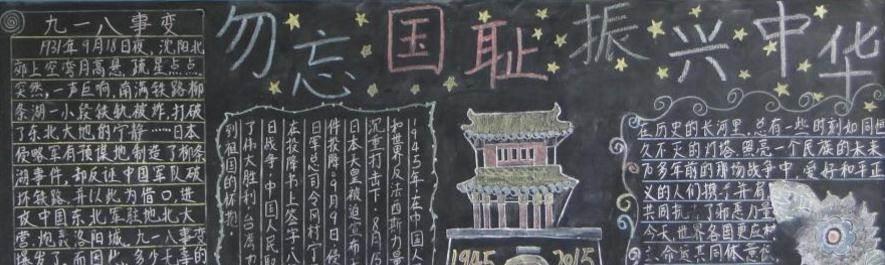 勿忘国耻振兴中华
九一八事变
1931年9月18日夜,沈阳北
郊上空弯月高悬,疏星点点
突然,一声巨响,南满铁路柳
条湖一小段铁轨被炸,打破
了东北大地的宁静……日本
侵略军有预谋地制造了柳条
湖事件,却反诬中国军队破
坏铁路,并以此为借口,进
攻中国东北军驻地北大
营,炮轰洛阳城,九一八事变
爆发了,而因此,多少
1945年,在中国人
和世界反法西斯力量
沉重打击下,8月15
日本天皇被迫宣布
件投降。9月9日,侵
日军总司令冈村宁
在投降书上签字,八
日战争,中国人民取
了伟大胜利,台湾
到祖国的怀抱。
1945 2015
在历史的长河里,总有一些时刻如同恒
久不灭的灯塔,照亮一个民族的未来
70多年前的那场战争中,爱好和平正
义的人们携手并肩
共同抗了邪恶力量
今天,世界各国更应
命运共同体意识